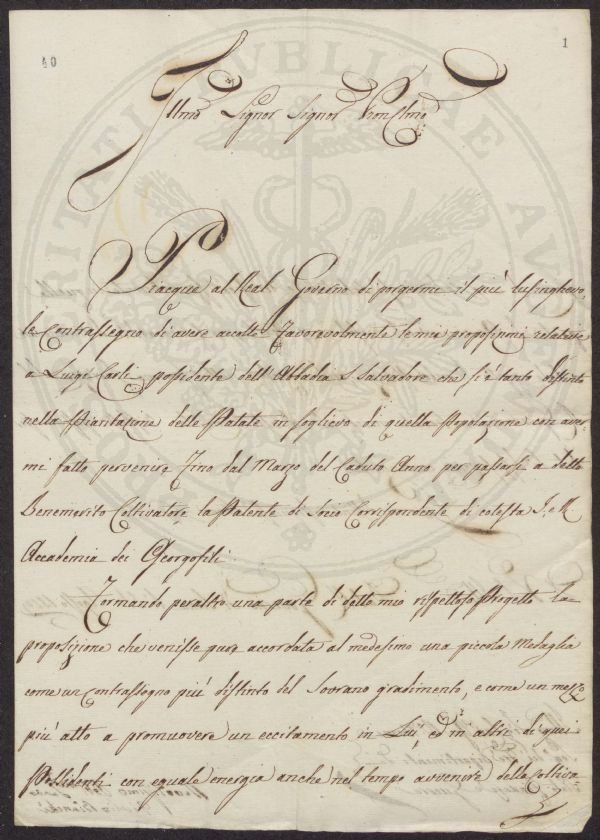 40
1
Illmo Signor Signor Pron Clmo
Piacque al Real Governo di porgermi il più lusinghevo,
le Contrassegno di avere accolte favorevolmente le mie proposizioni relative
a Luigi Carli possidente dell'Abbadia S. Salvadore che si è tanto distinto
nella Piantazione delle Patate in sollievo di quella Popolazione con aver
mi fatto pervenire fino dal Marzo del Caduto Anno per passarsi a detto
Benemerito Coltivatore la Patente di Socio Corrispondente di cotesta I. e R.
Accademia dei Georgofili.
Formando peraltro una parte di detto mio rispettoso Progetto la
proposizione che venisse pure accordata al medesimo una piccola Medaglia
come un Contrassegno più distinto del Sovrano gradimento, e come un mezzo
più atto a promuovere un eccitamento in Lui, ed in altri di quei
Possidenti con eguale energia anche nel tempo avvenire della Coltiva